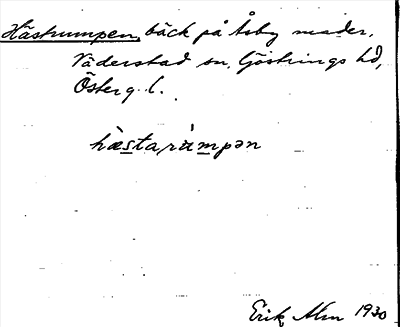 Hästrumpen, bäck på Åsby mader,
Väderstad sn, Göstrings hd,
Österg. l.
hæstarùmpən
Erik Alm 1930